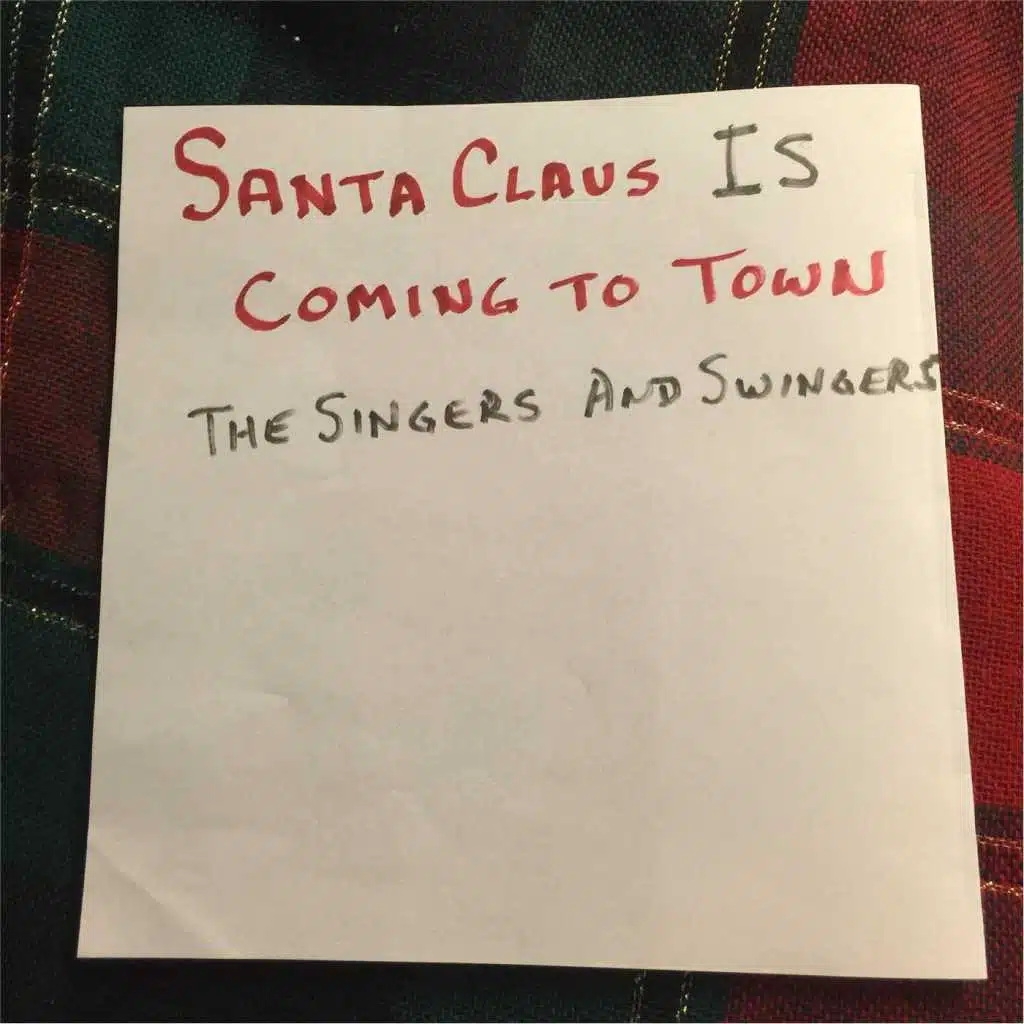 SANTA CLAUS IS
COMING TO TOWN
THE SINGERS AND SWINGERS